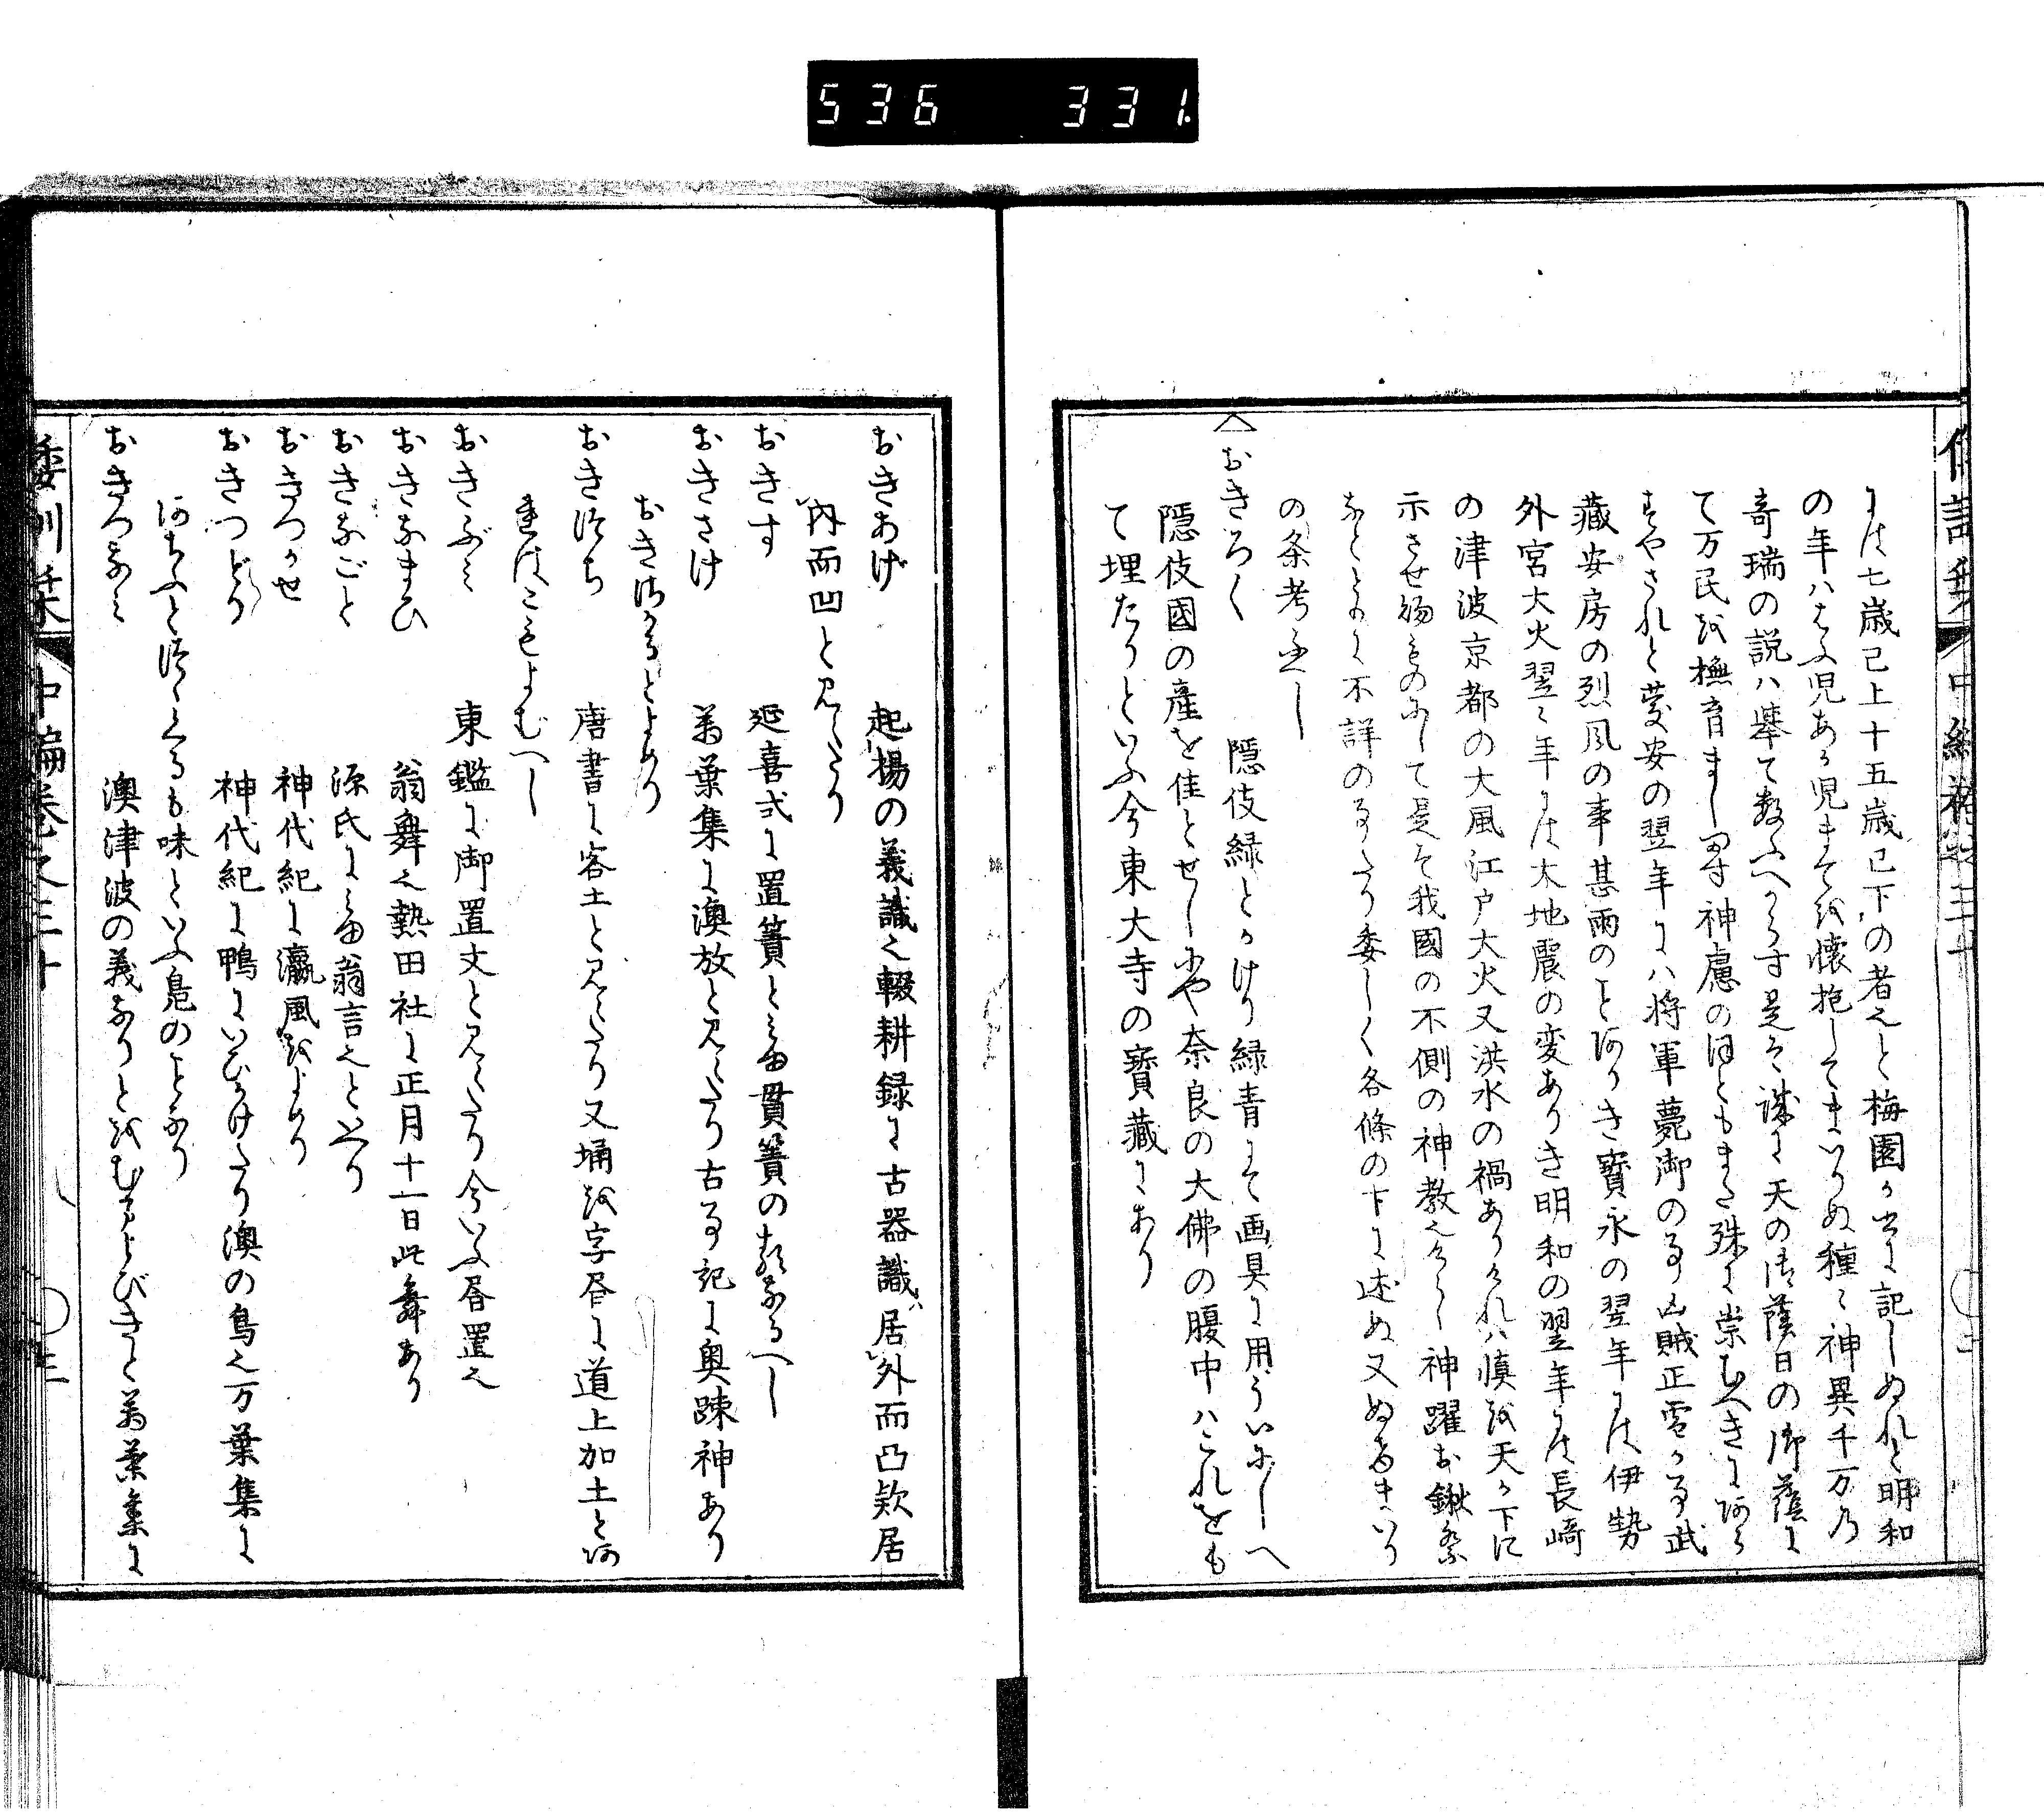 536 331
には七歳已上十五歳已下の者也と梅園か書に記しぬれと明和
の年ハはふ児ある児まてを懐抱してまいりぬ種〻神異千万乃
奇瑞の説ハ挙て数ふへからす是そ誠に天の御蔭日の御蔭に
て万民を撫育まします神慮のほともまた殊に崇むへきにあら
すやされと慶安の翌年にハ将軍薨御の事凶賊正雪か事武
藏安房の烈風の事甚雨のことありき寳永の翌年には伊勢
外宮大火翌〻年には大地震の変ありき明和の翌年には長﨑
の津波京都の大風江戸大火又洪水の禍ありけれハ慎を天か下に
示させ賜ものにして是そ我國の不側の神教也けらし神躍お鍬祭
なとことに不詳の事なり委しく各條の下に述ぬ又ぬけまいり
の条考ふへし
おきろく 隠伎緑とかけり緑青にて画具に用ういにしへ
隠伎國の産を佳とせしにや奈良の大佛の腹中ハこれをも
て埋たりといふ今東大寺の寳藏にあり
おきあげ 起揚の義識也輟耕録に古器識居外而凸欵居
内而凹と見えたり
おきす 延喜式に置簀と見ゆ貫簀の類なるへし
おきさけ 萬葉集に澳放と見えたり古事記に奥踈神あり
おきさかるとよめり
おきつち 唐書に客土と見えたり又埇を字居に道上加土とあ
れはこもよむへし
おきぶミ 東鑑に御置文と見えたり今いふ居置也
おきなまひ 翁舞也熱田社に正月十一日此舞あり
おきなごと 源氏に見ゆ翁言也といへり
おきつかせ 神代紀に瀛風をよめり
おきつどり 神代紀に鴨にいひかけたり澳の鳥也万葉集に
あちふとつゝくるも味といふ鳬のことなり
おきつなミ 澳津波の義なりとをむおよびきと萬葉集に
倭訓栞 中編巻之三十 三